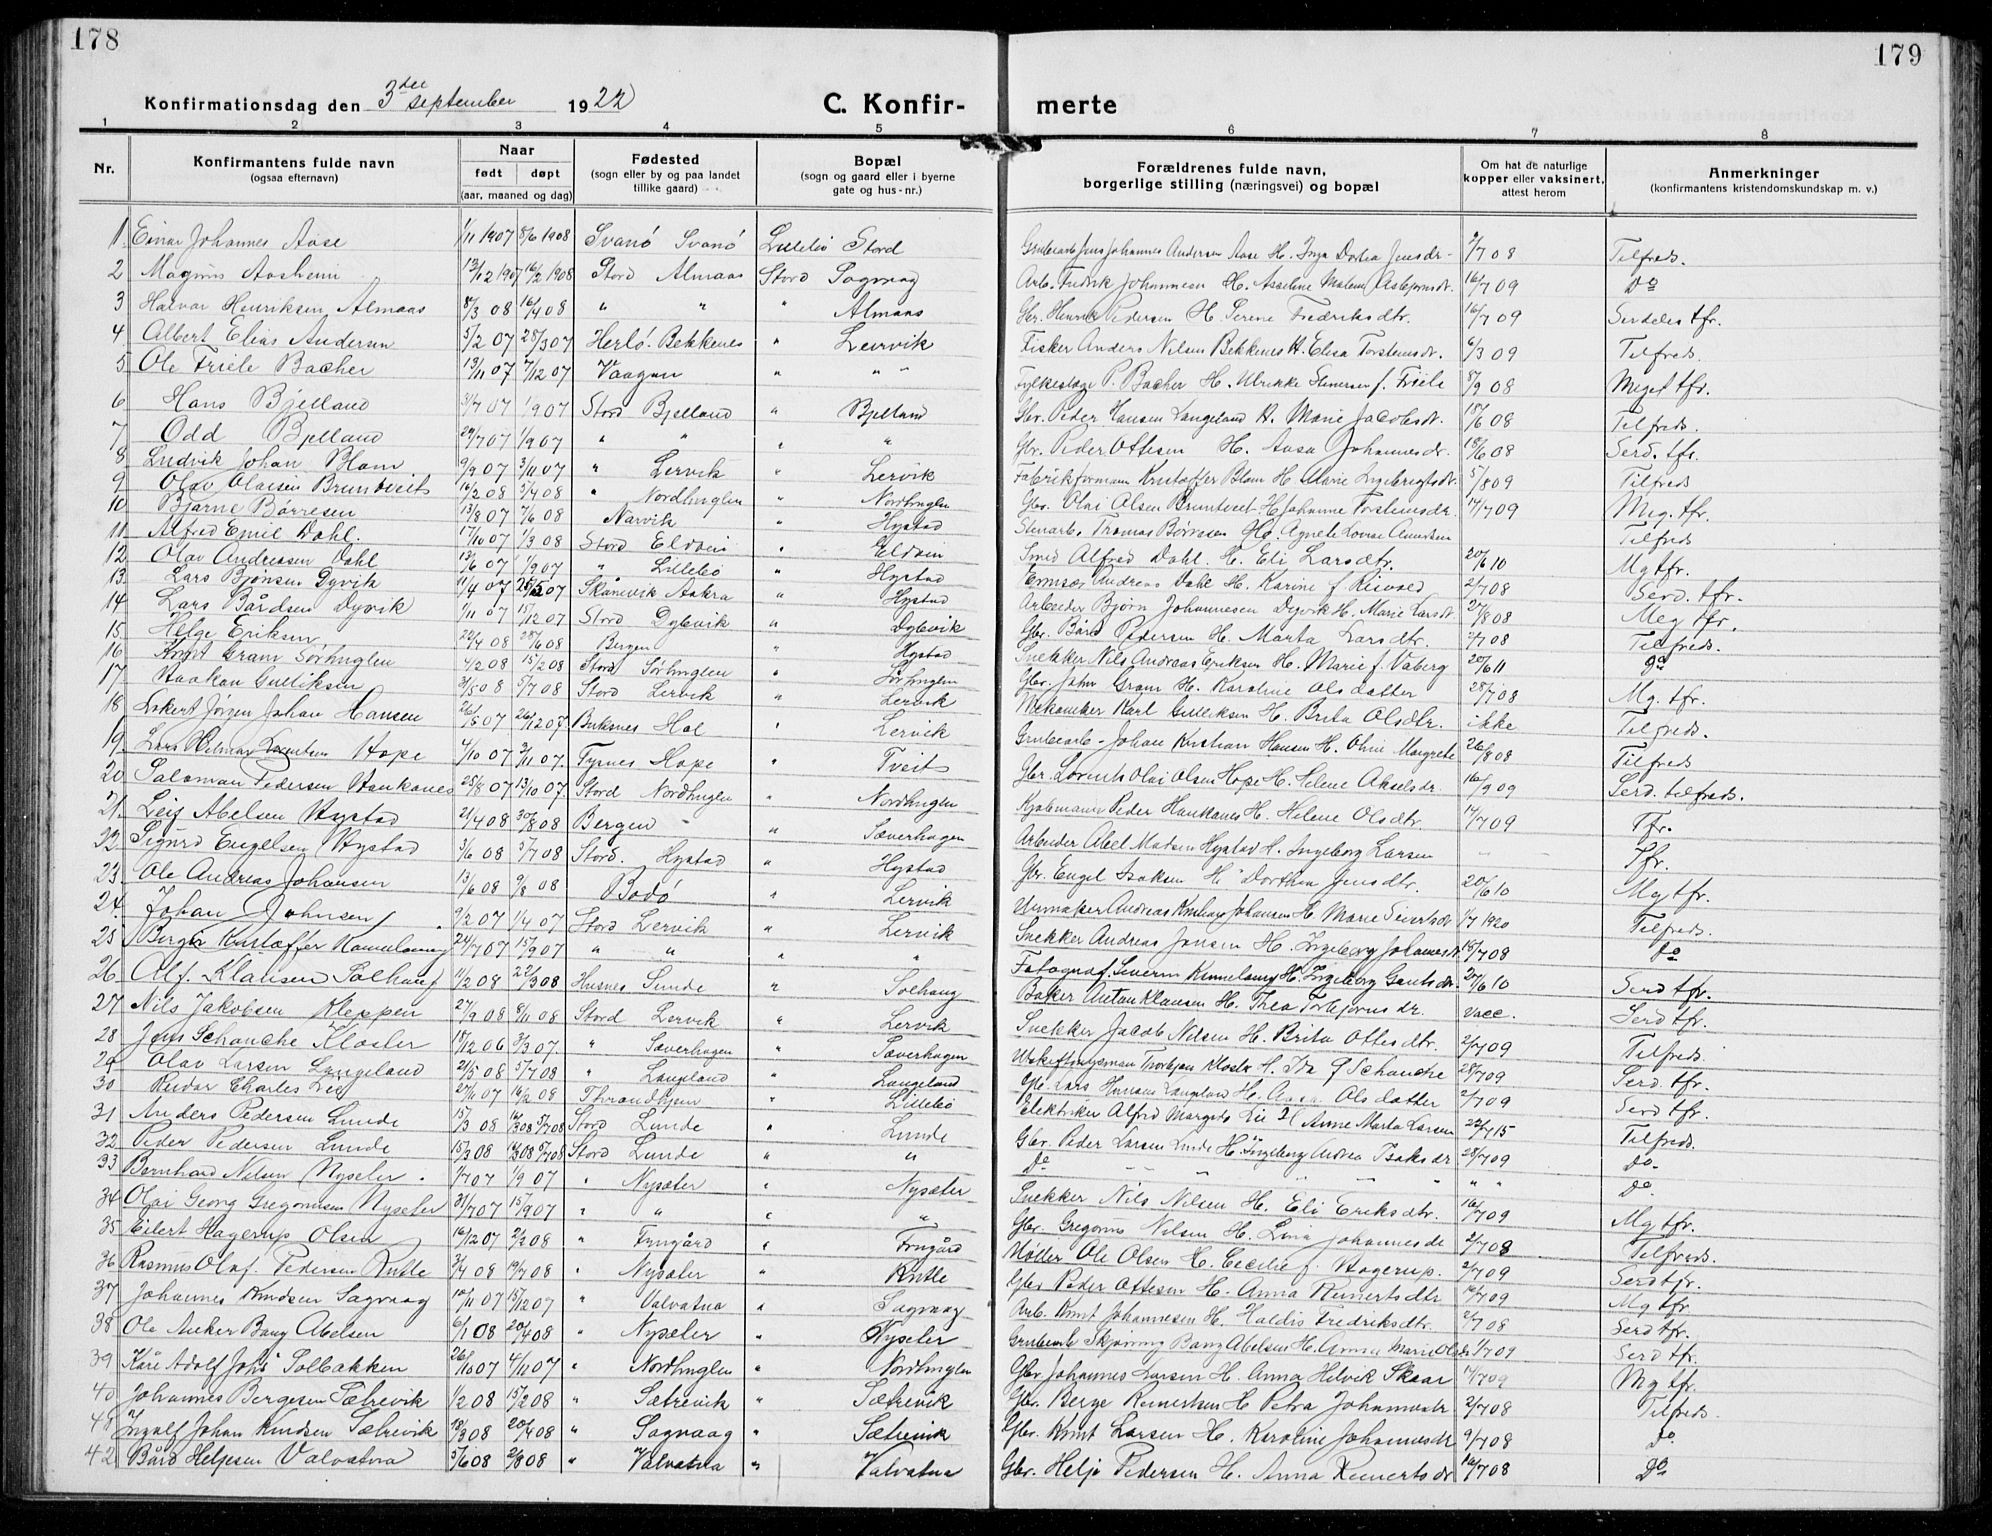 178
179
Konfirmationsdag den 3dee september 1922
C. Konfir-
merte
1 2 3 4 5 6 7 8
Nr.
Konfirmantens fulde navn
(ogsaa efternavn)
Naar
født døpt
(aar, maaned og dag)
Fødested
(sogn eller by og paa landet
tillike gaard)
Bopæl
(sogn og gaard eller i byerne
gate og hus-nr.)
Forældrenes fulde navn,
borgerlige stilling (næringsvei) og bopæl
Om hat de naturlige
kopper eller vaksinert,
attest herom
Anmerkninger
(konfirmantens kristendomskundskap m. v.)
1. Einar Johannes Aase 1/11 1907 8/6 1908 Svanö Svanö Lillebö Stord Grubearb. Jens Johannes Andersen Aase H. Inga Dortea Jensdr. 2/7 08 Tilfreds.
2 Magnus Aasheim 13/12 1907 16/2 1908 Stord Almaas Stord Sagvaag Arb. Fredrik Johannesen H. Asseline Malene Asbjørnsdt. 16/7 09 Do
3 Halvar Henriksen Almaas 8/3 08 16/4 08 " " " Almaas Gbr. Henrik Pedersen H. Serene Fredriksdtr. 16/7 09 Serdeles tfr.
4 Albert Elias Andersen 5/2 07 28/3 07 Herlö. Bekkenes " Leirvik Fisker Anders Nilsen Bekkenes H. Elisa Torstensdt. 6/3 09 Tilfreds.
5 Ole Friele Bacher 13/11 07 7/12 07 Vaagen " " " Fylkeslæge P. Bacher H. Ulrikke Stenersen f. Friele 8/9 08 Meget tfr.
6 Hans Bjelland 3/7 07 1/9 07 Stord Bjelland " Bjelland Gbr. Peder Hansen Langeland H. Marie Jacobsdt. 18/6 08 Tilfreds.
7 Odd Bjelland 29/7 07 1/9 07 " " " " Gbr. Peder Ottesen H. Aasa Johannesdr. 18/6 08 Serd. tfr.
8 Ludvik Johan Blom 9/9 07 3/11 07 " Lervik " Lervik Fabrikformann Kristoffer Blom H. Marie Ingebrigtsdt. 5/8 09 Tilfreds
9 Olav Olaisen Bruntveit 16/2 08 5/4 08 " Nordhuglen " Nordhuglen Gbr. Olai Olsen Bruntveit H. Johanne Torstensdr. 14/7 09 Meg. tfr.
10 Bjarne Børresen 13/8 07 7/6 08 Narvik " Hystad Stenarb. Thomas Børresen H. Agnete Lovise Amundsen Tilfreds
11 Alfred Emil Dahl. 17/10 07 1/3 08 Stord Eldöin " Eldöin Smed Alfred Dahl. H. Eli Larsdtr. 20/6 10 Mgtfr.
12 Olav Andreassen Dahl 12/6 07 1/9 07 " Lillebö " Hystad Andreas Dahl H. Karine f. Risvold 2/7 08 Serd. tfr.
13. Lars Bjønsen Dyvik 11/4 07 25/5 07 Skånevik Aakra " Hystad Arbeider Bjørn Johannesen Dyvik H. Marie Larsdt. 27/8 08 Meg tfr.
14 Lars Bårdsen Dyvik 1/11 07 15/12 07 Stord Dybvik " Dybvik Gbr. Bård Pedersen H. Marta Larsdtr. 2/7 08 Tilfreds.
15. Helge Eriksen 22/4 08 28/6 08 Bergen " Hystad Snekker Nils Andreas Eriksen H. Marie f. Vaberg 20/6 11 Do
16 Knut Gram Sörhuglen 4/2 08 15/2 08 Stord Sörhuglen " Sörhuglen Gbr. John Gram H. Karoline Olsdatter 28/7 08 Mg. tfr.
17 Haakon Gulliksen 21/5 08 5/7 08 Stord Lervik " Lervik Mekaniker Karl Gulliksen H. Brita Olsdtr. ikke Tilfreds.
18 Johan Hansen 26/5 07 26/12 07. Buksnes Hol " Lervik Grubearb. Johan Kristian Hansen H. Oline Margrete 26/8 08 Tilfreds
19 Lars Hilmar Lorentsen Hope 4/10 07 3/11 07. Fyrnes Hope " Tveit Gbr. Lorents Olai Olsen Hope H. Helene Akselsdr. 16/9 09 Serd. tilfreds.
20 Salomon Pedersen Haukanes 25/8 07 13/10 07. Stord Nordhuglen " Nordhuglen Kjøbmann Peder Haukanes H. Helene Olsdtr. 14/7 09 Tfr.
21. Leif Abelsen Hystad 21/4 08 30/8 08 Bergen " Sæverhagen Arbeider Abel Madsen Hystad H. Ingeborg Larsen " " Tfr.
22 Sigurd Engelsen Hystad 3/6 08 5/7 08 Stord. Hystad " Hystad Gbr. Engel Isaksen H. Dorthea Jensdtr. 20/6 10 Mg tfr.
23 Ole Andreas Johansen 13/6 08 9/8 08 Bodö " Lervik Urmaker Andreas Johansen H. Marie Sivertsdt. 1/7 1920 Tilfreds.
24. Johan Johnsen 9/2 07 1/4 07 Stord Lervik " Lervik Snekker Andreas Jonsen H. Ingeborg Johannesdt. 15/7 08 Do
25 Birger Kristoffer 24/7 07 15/9 07 " " " " Fotograf. Severin H. Ingeborg 20/6 10 Serd tfr.
26 Alf. Klausen Solhaug 11/2 08 22/3 08 Husnes Sunde " Solhaug Baker Anton Klausen H. Thea Torbjørnsdr. vacc. Serd tfr.
27 Nils Jakobsen Kleppen 27/9 08 8/11 08 Stord Lervik " Lervik Snekker Jacob Nilsen H. Brita Ottesdtr. 2/7 09 Tilfreds.
28 Jens Schanche Kloster 18/12 06 3/3 07. " Sæverhagen " Sæverhagen Torbjørn Kloster H. Ida f Schanche 28/7 09 Serd. tfr.
29 Olav Larsen Langeland 21/5 08 5/7 08 " Langeland " Langeland Gbr. Lars Hansen Langeland H. Anna Olsdatter 2/7 09 Serd tfr.
30 Reidar Charles Lie 27/11 07 16/2 08 Thrandhjem " Lillebö Elektriker Alfred Lie H Anne Marta Larsen 22/4 15 Tilfreds.
31 Anders Pedersen Lunde 15/3 08 5/7 08 Stord Lunde " Lunde Gbr. Peder Larsen Lunde H. Ingeborg Andrea Isaksdr 28/7 09 Do.
32 Peder Pedersen Lunde 15/3 08 5/7 08 Stord Lunde " " Do " " " " Do.
33 Bernhard Nilsen Nysæter. 1/7 07 1/9 07 " Nysæter " Nysæter Snekker Nils Nilsen H. Eli Eriksdtr. 16/7 09 Mg tfr.
34 Olai Georg Gregoriusen Nysæter 31/7 07 15/9 07 " " " " Gbr. Gregorius Nilsen H. Lina Johannesdt 2/7 08 Tilfreds.
35 Eilert Hagerup Olsen 16/12 07 2/2 08 " Frugård " Frugård Møller Ole Olsen H. Cecilie f. Hagerup. 2/7 09 Serd tfr.
36 Rasmus Olaf. Pedersen Rutle 3/4 08 19/4 08 " Nysæter " Rutle Gbr Peder Ottesen H. Anna Reinertsdtr 16/7 09 Mg tfr
37 Johannes Knudsen Sagvaag 10/11 07 15/12 07 " Valvatna " Sagvaag Arb. Knut Johannesen H. Haldis Fredriksdtr. 2/7 08 Serd tfr.
38 Ole Anker Bang Abelsen 6/1 08 20/4 08 " Nysæter " Nysæter Grubearb Skjøning Bang Abelsen H. Anna Marie Olsdt 1/7 09 Serd tfr.
39 Kåre Adolf Johs Solbakken 26/10 07 4/11 07 " Nordhuglen " Nordhuglen Gbr Johannes Larsen H. Anna Helvik Skaar 14/7 09 Mg tfr.
40 Johannes Bergesen Sætrevik 1/2 08 15/2 08 " Sætrevik " Sætrevik Gbr. Berge Reinertsen H Petra Johannesdr 2/7 08 Tilfreds.
41 Ingolf Johan Knudsen Sætrevik 18/3 08 20/4 08 " Sagvaag " Sætrevik Gbr. Knut Larsen H. Karoline Johannesdt 9/7 08 Do
42 Bård Heljesen Valvatna 5/6 08 2/8 08 " Valvatna " Valvatna Gbr. Helje Pedersen H. Anna Reinertsdr 16/7 08 Do